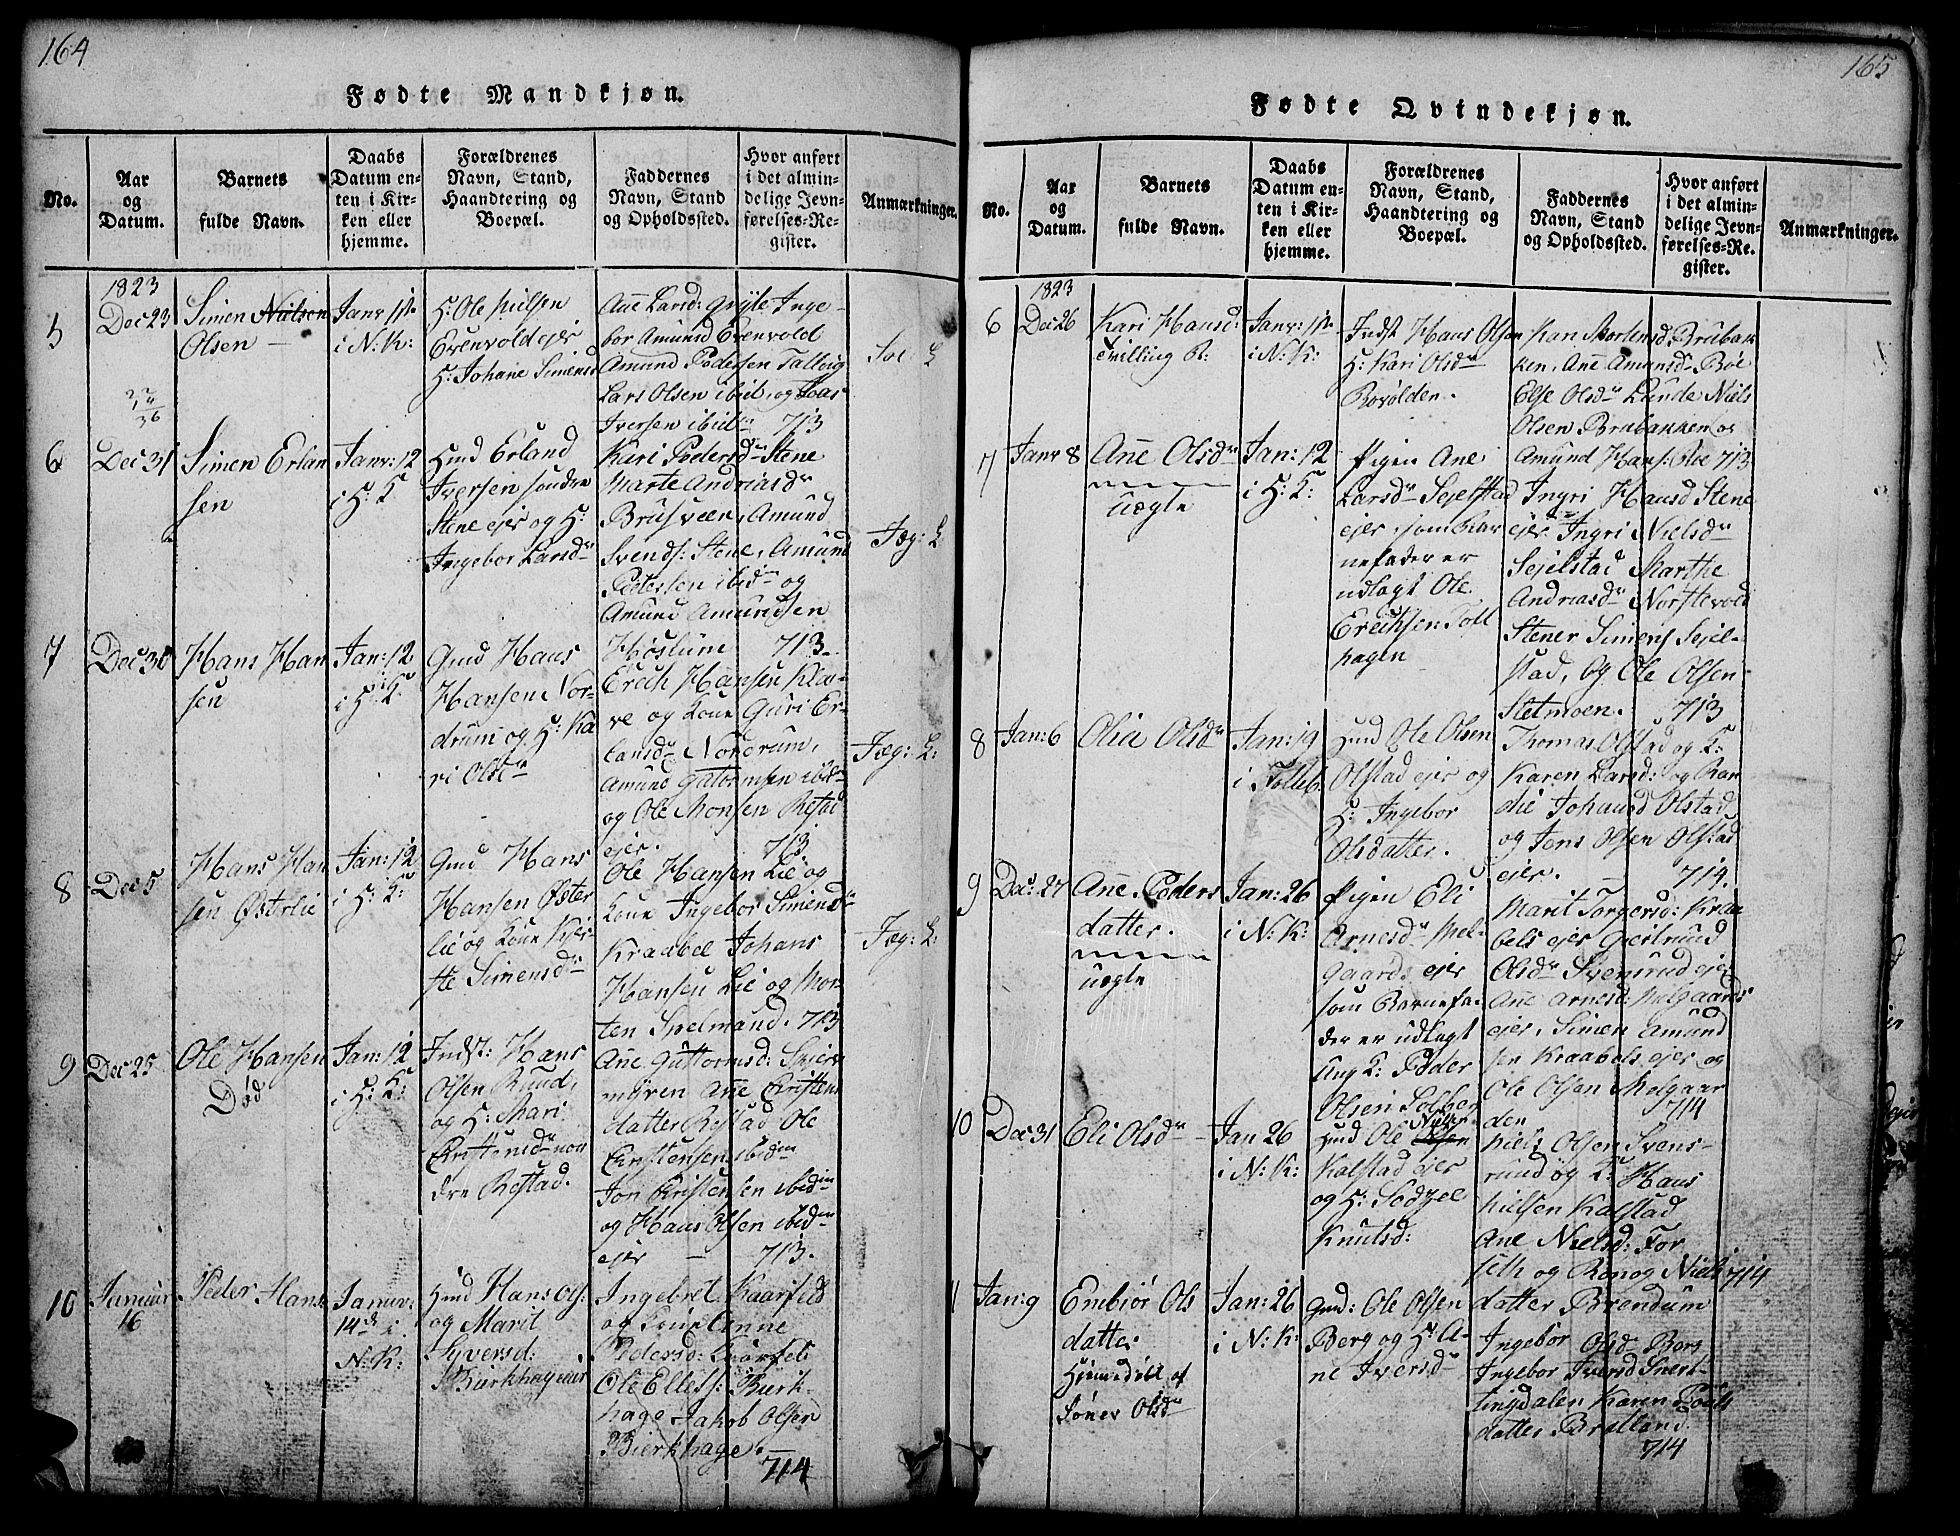 164
Fødte Mandkjøn.
No.
Aar
og
Datum.
Barnets
fulde Navn.
Daabs
Datum en-
ten i Kir-
ken eller
hjemme.
Forældrenes
Navn, Stand,
Haandtering og
Boepæl.
Faddernes
Navn, Stand
og Opholdssted.
Hvor anført
i det almin-
delige Jevn-
førelses-Re-
gister.
Anmærkninger.
5
1823
Dec 23
Simen Nielsen
Olsen
Janv: 1ste
i N: K:
H: Ole Nielsen
Evenvold ejer
H: Johane Simensd
Ane Larsd: Grytte Inge-
bor Amunsd Evenvold
Amund Pedersen
Lars Olsen ibid: og
Iversen ibid: 713
6
Dec 31
Simen Erlan
sen
Janv: 12
i H: K
Gmd Erland
Iversen søndre
Stene ejer og H:
Ingebor Larsdr
Kari Pedersdr Stene
Marte Andriasdr
Brusveen, Amund
Svends: Stene, Amund
Pedersen ibidm og
Amund Amundsen
Høslum 713
Fæg: L
7
Dec 30
Hans Han
sen
Jan: 12
i H: K
Gmd Hans
Hansen Nor-
drum og H: Ka
ri Olsdr
Erich Hansen Klæ-
ve og Kone Guri Er-
lansdr Nordrum,
Amund Gutormsen ibidm
og Ole Monsen Restad
ejer. 713
Fæg: L:
8
Dec 5
Hans Han
sen Østerlie
Jan: 12
i H: K:
Gmd Hans
Hansen Øster
lie og Kone Kjer-
ste Simensdr
Ole Hansen Lie og
Kone Ingebor Simensdr
Kraabel Johans
Hansen Lie og Mor-
ten Spelmand. 713
Fæg: L:
9
Dec 25
Ole Hansen
Død
Jan: 12
i H: K:
Indst: Hans
Olsen Rund,
og H: Mari
Christensdr nor
dre Restad.
Ane Guttormsd:
myren Ane Cristens
datter Restad Ole
Christensen ibidm
Jon Kristensen ibidm
og Hans Olsen ibidm
ejer 713.
10
Januar
16
Peder Hans
Januv:
14de i
N: K:
Gmd Hans Ols:
og Marit
Syversd:
Bierkhagen
Ingebret Kaarstad
og Kone Anne
Pedersd:
Ole Ellefs: Bierk-
hage Jakob Olsen
Bierkhage.
714
165
Fødte Qvindekjøn.
No.
Aar
og
Datum.
Barnets
fulde Navn.
Daabs
Datum en-
ten i Kir-
ken eller
hjemme.
Forældrenes
Navn, Stand,
Haandtering og
Boepæl.
Faddernes
Navn, Stand
og Opholdssted.
Hvor anført
i det almin-
delige Jevn-
førelses-Re-
gister.
Anmærkninger.
6
1823
Dec 26
Kari Hansd:
tvilling B:
Janv: 1ste
i N: K:
Indst Hans Olsen
H: Kari Olsdr
Rovolden.
Kari Mortensd: Brubak
ken, Ane Amunsdr Bøe
Else Olsdr Lunde Niels
Olsen Brubakken og
Amund Hans: Bøe 713
7
Janv 8
Ane Olsdr
uægte
Jan: 12
i H: K:
Pigen Ane
Larsdr Sejelstad
ejer, som Bar
nefader er
udlagt Ole
Erichsen Toll
hagen
Ingri Hansd Stene
ejer Ingri Nielsdr
Sejelstad Marthe
Andriasdr Norstevold
Stener Simens Sejel-
stad, og Ole Olsen
Sletmoen. 713
8
Jan: 6
Olia Olsdr
Jan: 19
i Folleb.
Gmd Ole Olsen
Olstad ejer og
H: Ingebor
Olsdatter.
Thomas Olstad og K:
Karen Larsd: og Ran
die Johansd Olstad
og Jens Olsen Olstad
ejer. 714.
9
Dec: 27
Ane Peders
datter.
uægte
Jan: 26
i N: K:
Pigen Eli
Arnesdr Mel-
gaards ejer
som Barnefa-
der er udlagt
Ung K: Peder
Olsen Solber
Marit Torgersd: Kraa
bels ejer Giertrund
Olsdr Svensrud ejer
Ane Arnesd: Melgaards
ejer, Simen Amund
sen Kraabels ejer og
Ole Olsen Melgaar
den 714
10
Dec 31
Eli Olsdr
Jan 26
i N: K:
Gmd Ole Olsen
Kalstad ejer
og H:
Knutsd:
Niels Olsen Svens-
rud og K: Hans
Nielsen Kalstad
Ane Nielsd: For
seth og Ronog Niels 714
datter Brendum
11
Jan: 9
Embiør Ols
datter
Hjemedøbt af
Søner Olsdr
Jan: 26
i N: K:
Gmd: Ole Olsen
Berg og H: A-
ne Iversdr
Ingebor Olsd Berg
Ingebor Iversd Svert-
tingdalen Karen Poels
datter Brolland
714